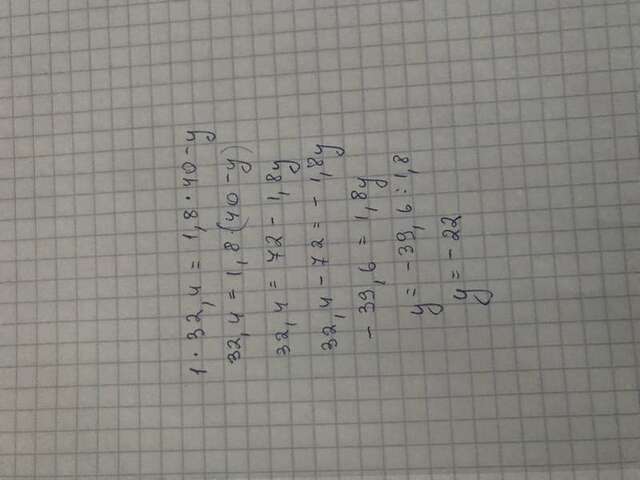 1 · 32,4 = 1,8 · 40 - y
32,4 = 1,8 · (40 - y)
32,4 = 72 - 1,8y
32,4 - 72 = - 1,8y
- 39,6 = 1,8y
y = - 39,6 : 1,8
y = - 22